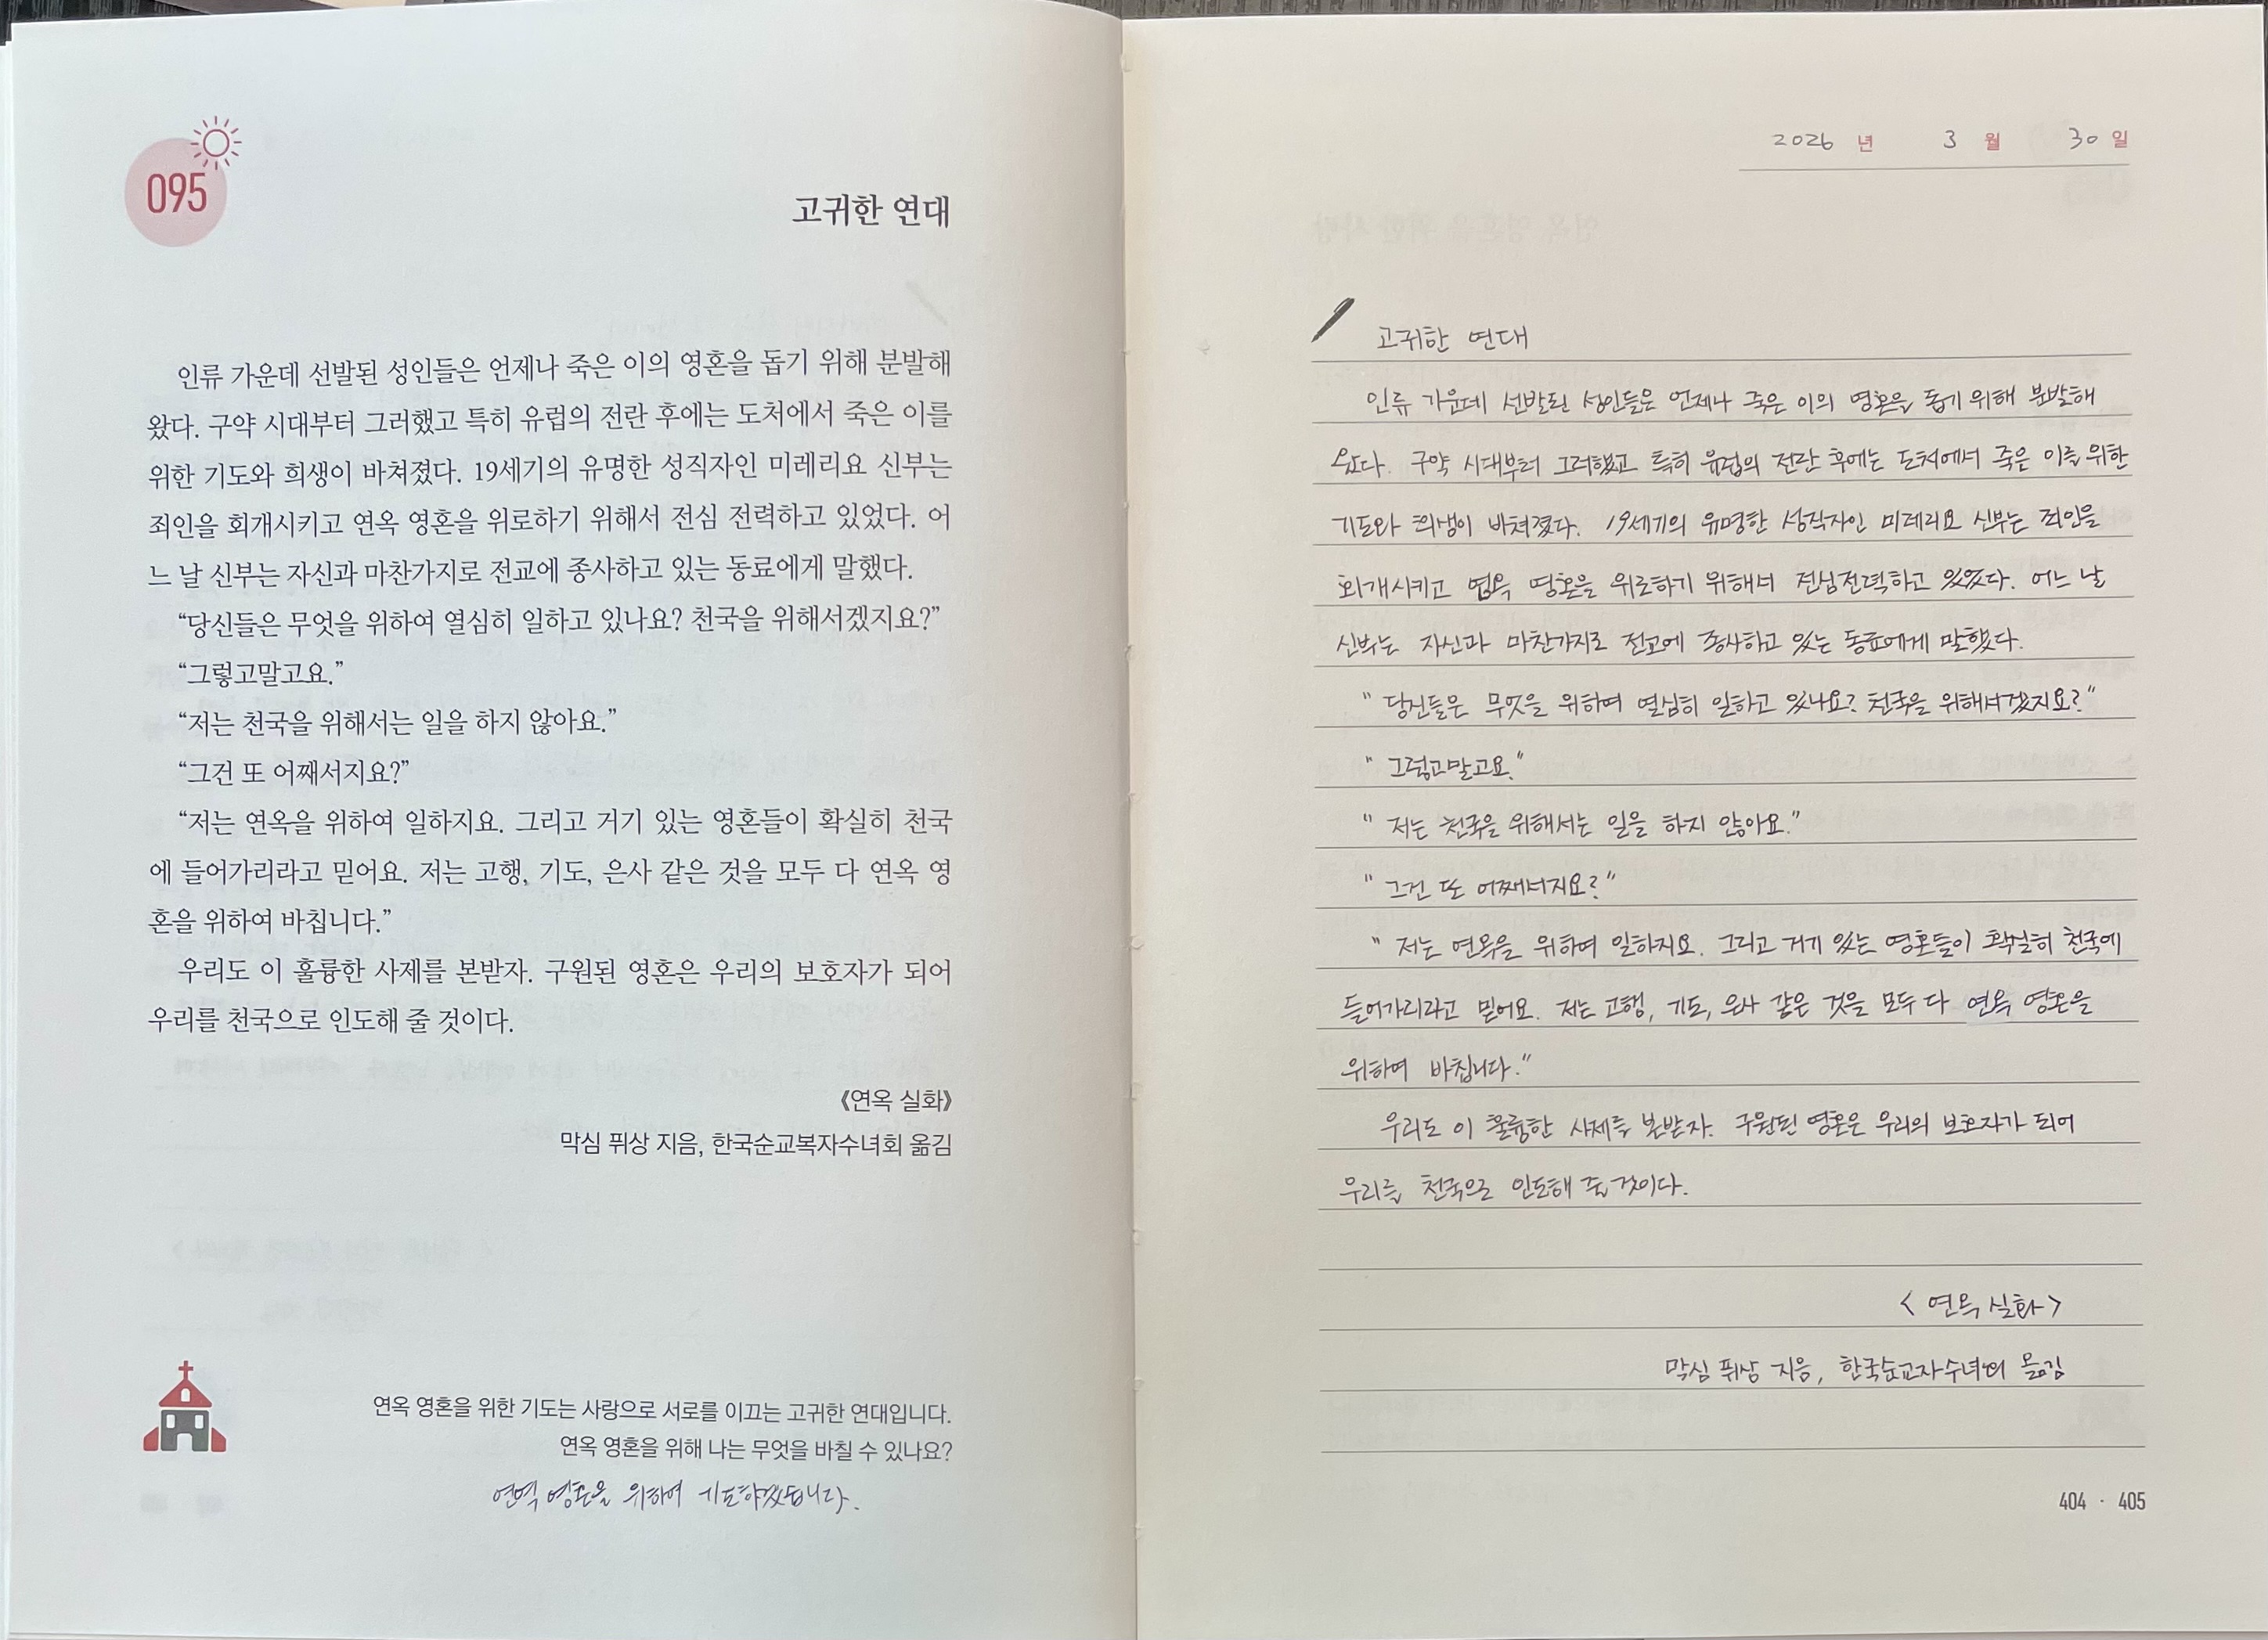 095
고귀한 연대
인류 가운데 선발된 성인들은 언제나 죽은 이의 영혼을 돕기 위해 분발해
왔다. 구약 시대부터 그러했고 특히 유럽의 전란 후에는 도처에서 죽은 이를
위한 기도와 희생이 바쳐졌다. 19세기의 유명한 성직자인 미레리요 신부는
죄인을 회개시키고 연옥 영혼을 위로하기 위해서 전심 전력하고 있었다. 어
느 날 신부는 자신과 마찬가지로 전교에 종사하고 있는 동료에게 말했다.
“당신들은 무엇을 위하여 열심히 일하고 있나요? 천국을 위해서겠지요?”
“그렇고말고요.”
“저는 천국을 위해서는 일을 하지 않아요.”
“그건 또 어째서지요?”
“저는 연옥을 위하여 일하지요. 그리고 거기 있는 영혼들이 확실히 천국
에 들어가리라고 믿어요. 저는 고행, 기도, 은사 같은 것을 모두 다 연옥 영
혼을 위하여 바칩니다.”
우리도 이 훌륭한 사제를 본받자. 구원된 영혼은 우리의 보호자가 되어
우리를 천국으로 인도해 줄 것이다.
《연옥 실화》
막심 퓌상 지음, 한국순교복자수녀회 옮김
연옥 영혼을 위한 기도는 사랑으로 서로를 이끄는 고귀한 연대입니다.
연옥 영혼을 위해 나는 무엇을 바칠 수 있나요?
연옥 영혼을 위하여 기도하겠습니다.
2026 년 3 월 30 일
고귀한 연대
인류 가운데 선발된 성인들은 언제나 죽은 이의 영혼을 돕기 위해 분발해
왔다. 구약 시대부터 그러했고 특히 유럽의 전란 후에는 도처에서 죽은 이를 위한
기도와 희생이 바쳐졌다. 19세기의 유명한 성직자인 미레리요 신부는 죄인을
회개시키고 연옥 영혼을 위로하기 위해서 전심전력하고 있었다. 어느 날
신부는 자신과 마찬가지로 전교에 종사하고 있는 동료에게 말했다.
" 당신들은 무엇을 위하여 열심히 일하고 있나요? 천국을 위해서겠지요?"
" 그렇고말고요."
" 저는 천국을 위해서는 일을 하지 않아요."
" 그건 또 어째서지요?"
" 저는 연옥을 위하여 일하지요. 그리고 거기 있는 영혼들이 확실히 천국에
들어가리라고 믿어요. 저는 고행, 기도, 은사 같은 것을 모두 다 연옥 영혼을
위하여 바칩니다."
우리도 이 훌륭한 사제를 본받자. 구원된 영혼은 우리의 보호자가 되어
우리를 천국으로 인도해 줄 것이다.
< 연옥 실화>
막심 퓌상 지음, 한국순교자수녀회 옮김
404 · 405